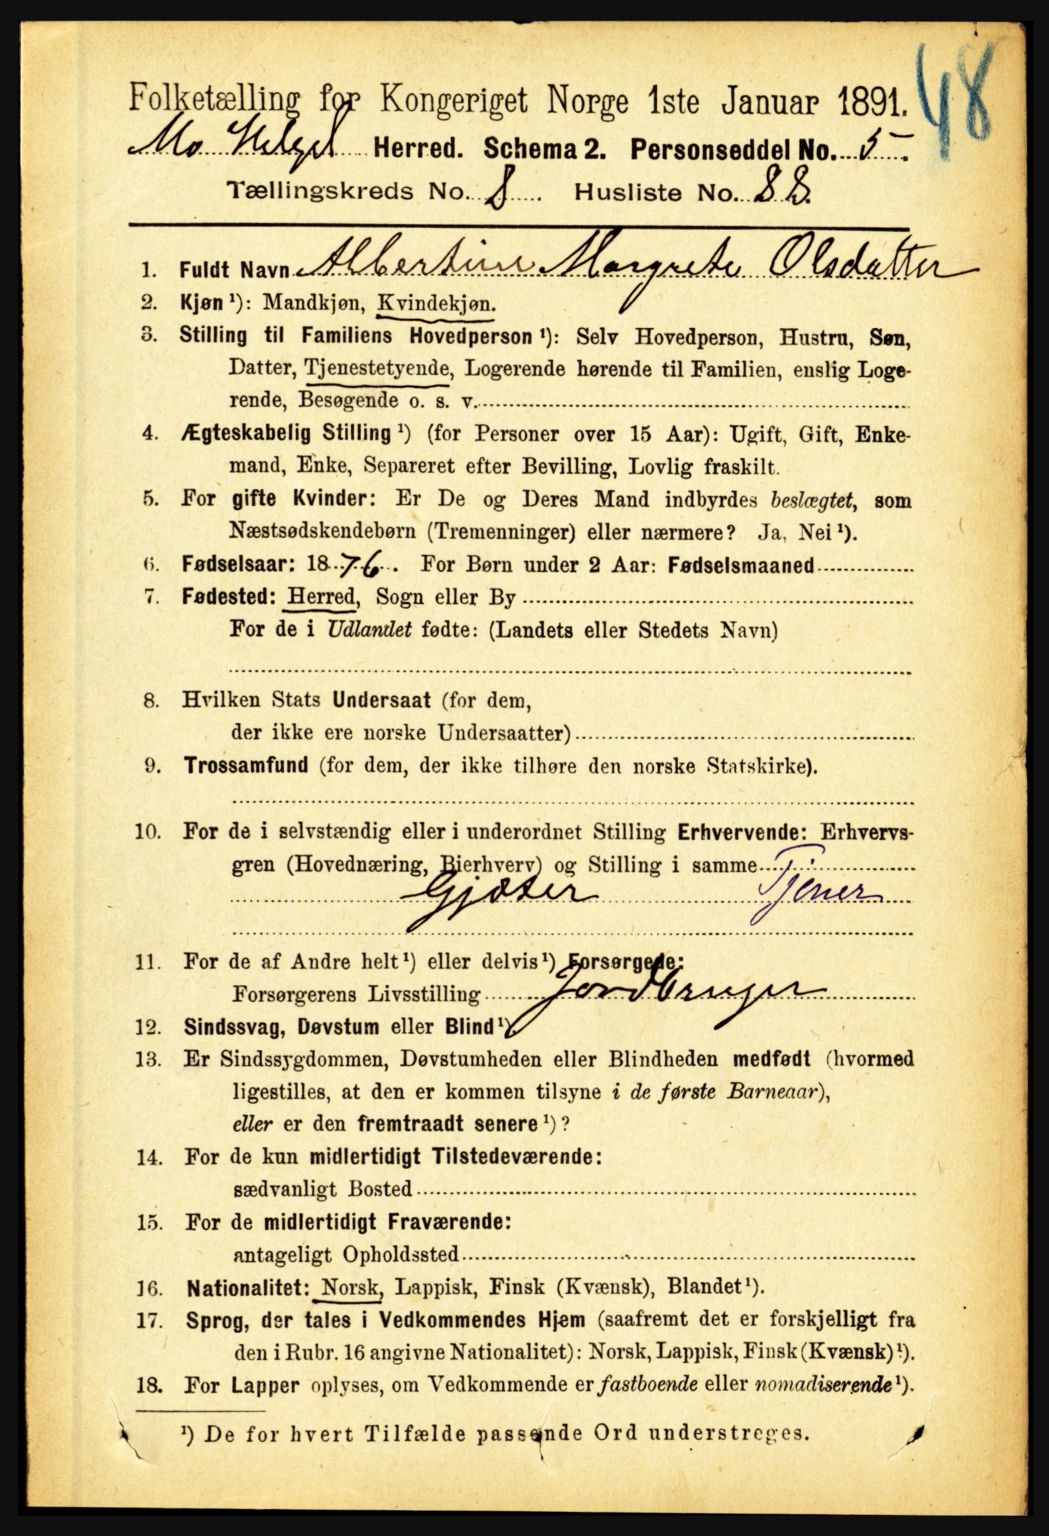 48
Folketælling for Kongeriget Norge 1ste Januar 1891.
Mo Helgel Herred. Schema 2. Personseddel No. 5.
Tællingskreds No. 8 Husliste No. 88.
1. Fuldt Navn Albertine Margrete Olsdatter
2. Kjøn ¹): Mandkjøn, Kvindekjøn.
3. Stilling til Familiens Hovedperson ¹): Selv Hovedperson, Hustru, Søn,
Datter, Tjenestetyende, Logerende hørende til Familien, enslig Loge-
rende, Besøgende o. s. v.
4. Ægteskabelig Stilling ¹) (for Personer over 15 Aar): Ugift, Gift, Enke-
mand, Enke, Separeret efter Bevilling, Lovlig fraskilt.
5. For gifte Kvinder: Er De og Deres Mand indbyrdes beslægtet, som
Næstsødskendebørn (Tremenninger) eller nærmere? Ja, Nei ¹).
6. Fødselsaar: 1876. For Børn under 2 Aar: Fødselsmaaned
7. Fødested: Herred, Sogn eller By
For de i Udlandet fødte: (Landets eller Stedets Navn)
8. Hvilken Stats Undersaat (for dem,
der ikke ere norske Undersaatter)
9. Trossamfund (for dem, der ikke tilhøre den norske Statskirke).
10. For de i selvstændig eller i underordnet Stilling Erhvervende: Erhvervs-
gren (Hovednæring, Bierhverv) og Stilling i samme
Gjæter Tjener
11. For de af Andre helt ¹) eller delvis ¹) Forsørgede:
Forsørgerens Livsstilling Jordbruger
12. Sindssvag, Døvstum eller Blind ¹).
13. Er Sindssygdommen, Døvstumheden eller Blindheden medfødt (hvormed
ligestilles, at den er kommen tilsyne i de første Barneaar),
eller er den fremtraadt senere ¹)?
14. For de kun midlertidigt Tilstedeværende:
sædvanligt Bosted
15. For de midlertidigt Fraværende:
antageligt Opholdssted
16. Nationalitet: Norsk, Lappisk, Finsk (Kvænsk), Blandet ¹).
17. Sprog, der tales i Vedkommendes Hjem (saafremt det er forskjelligt fra
den i Rubr. 16 angivne Nationalitet): Norsk, Lappisk, Finsk (Kvænsk) ¹).
18. For Lapper oplyses, om Vedkommende er fastboende eller nomadiserende ¹).
¹) De for hvert Tilfælde passende Ord understreges.